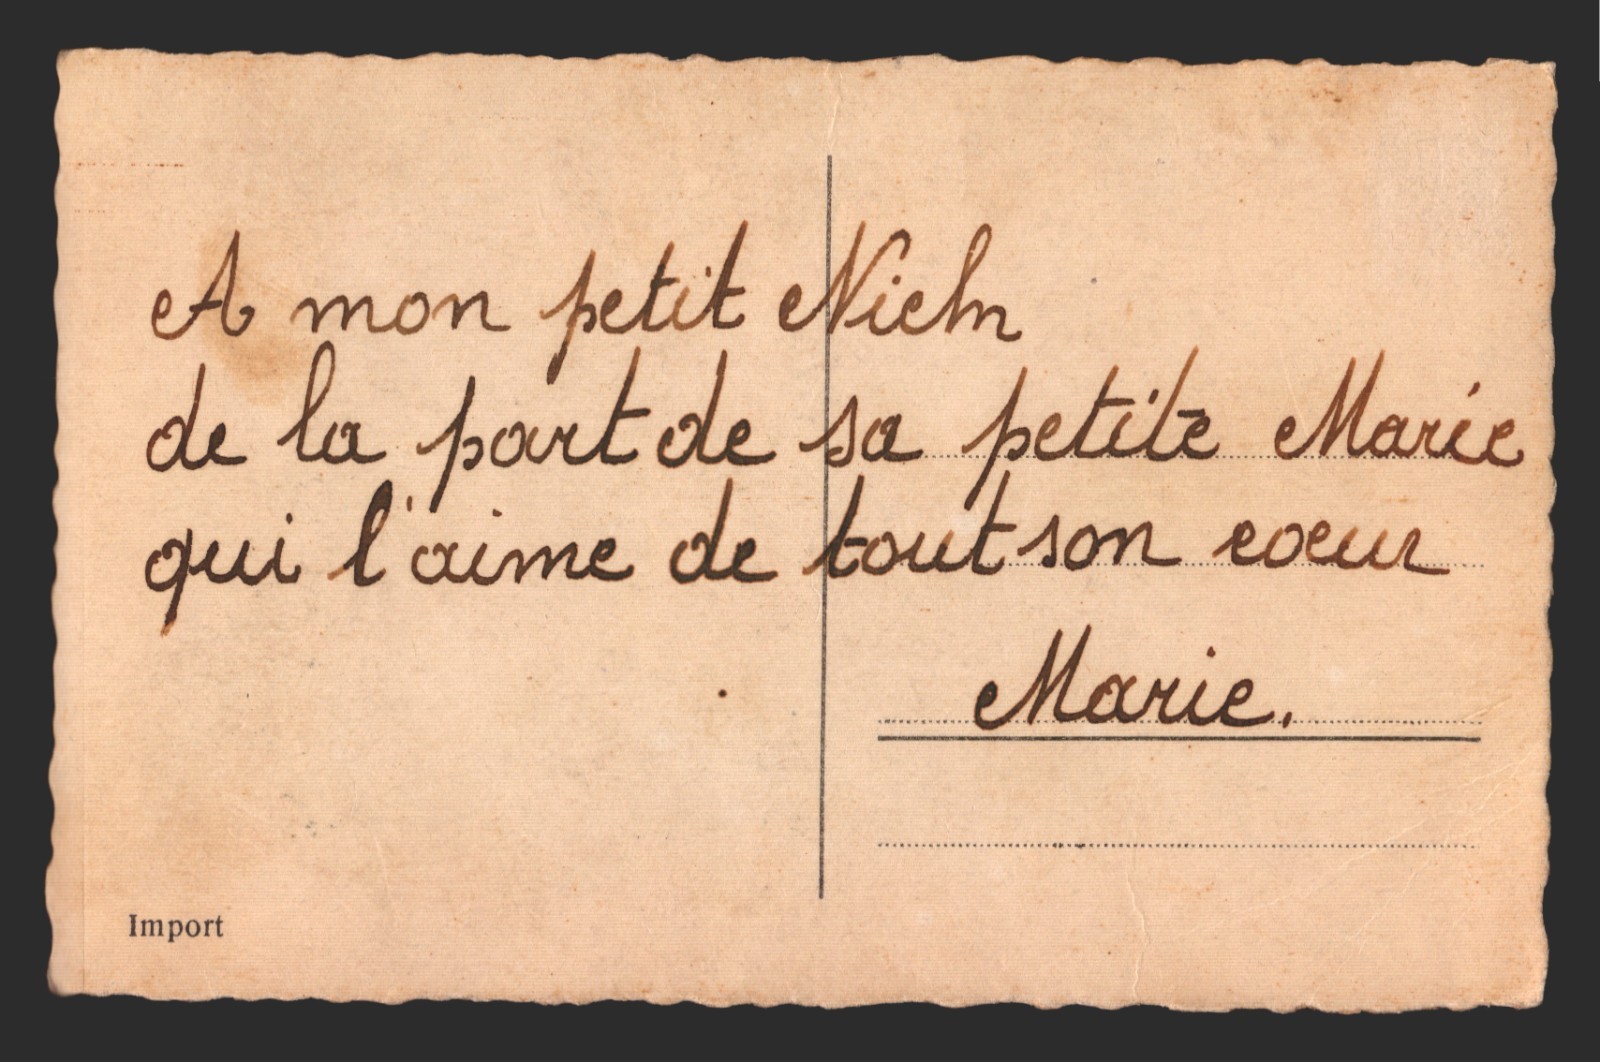 A mon petit
de la part de sa petite Marie
qui l'aime de tout son coeur
Marie.
Import